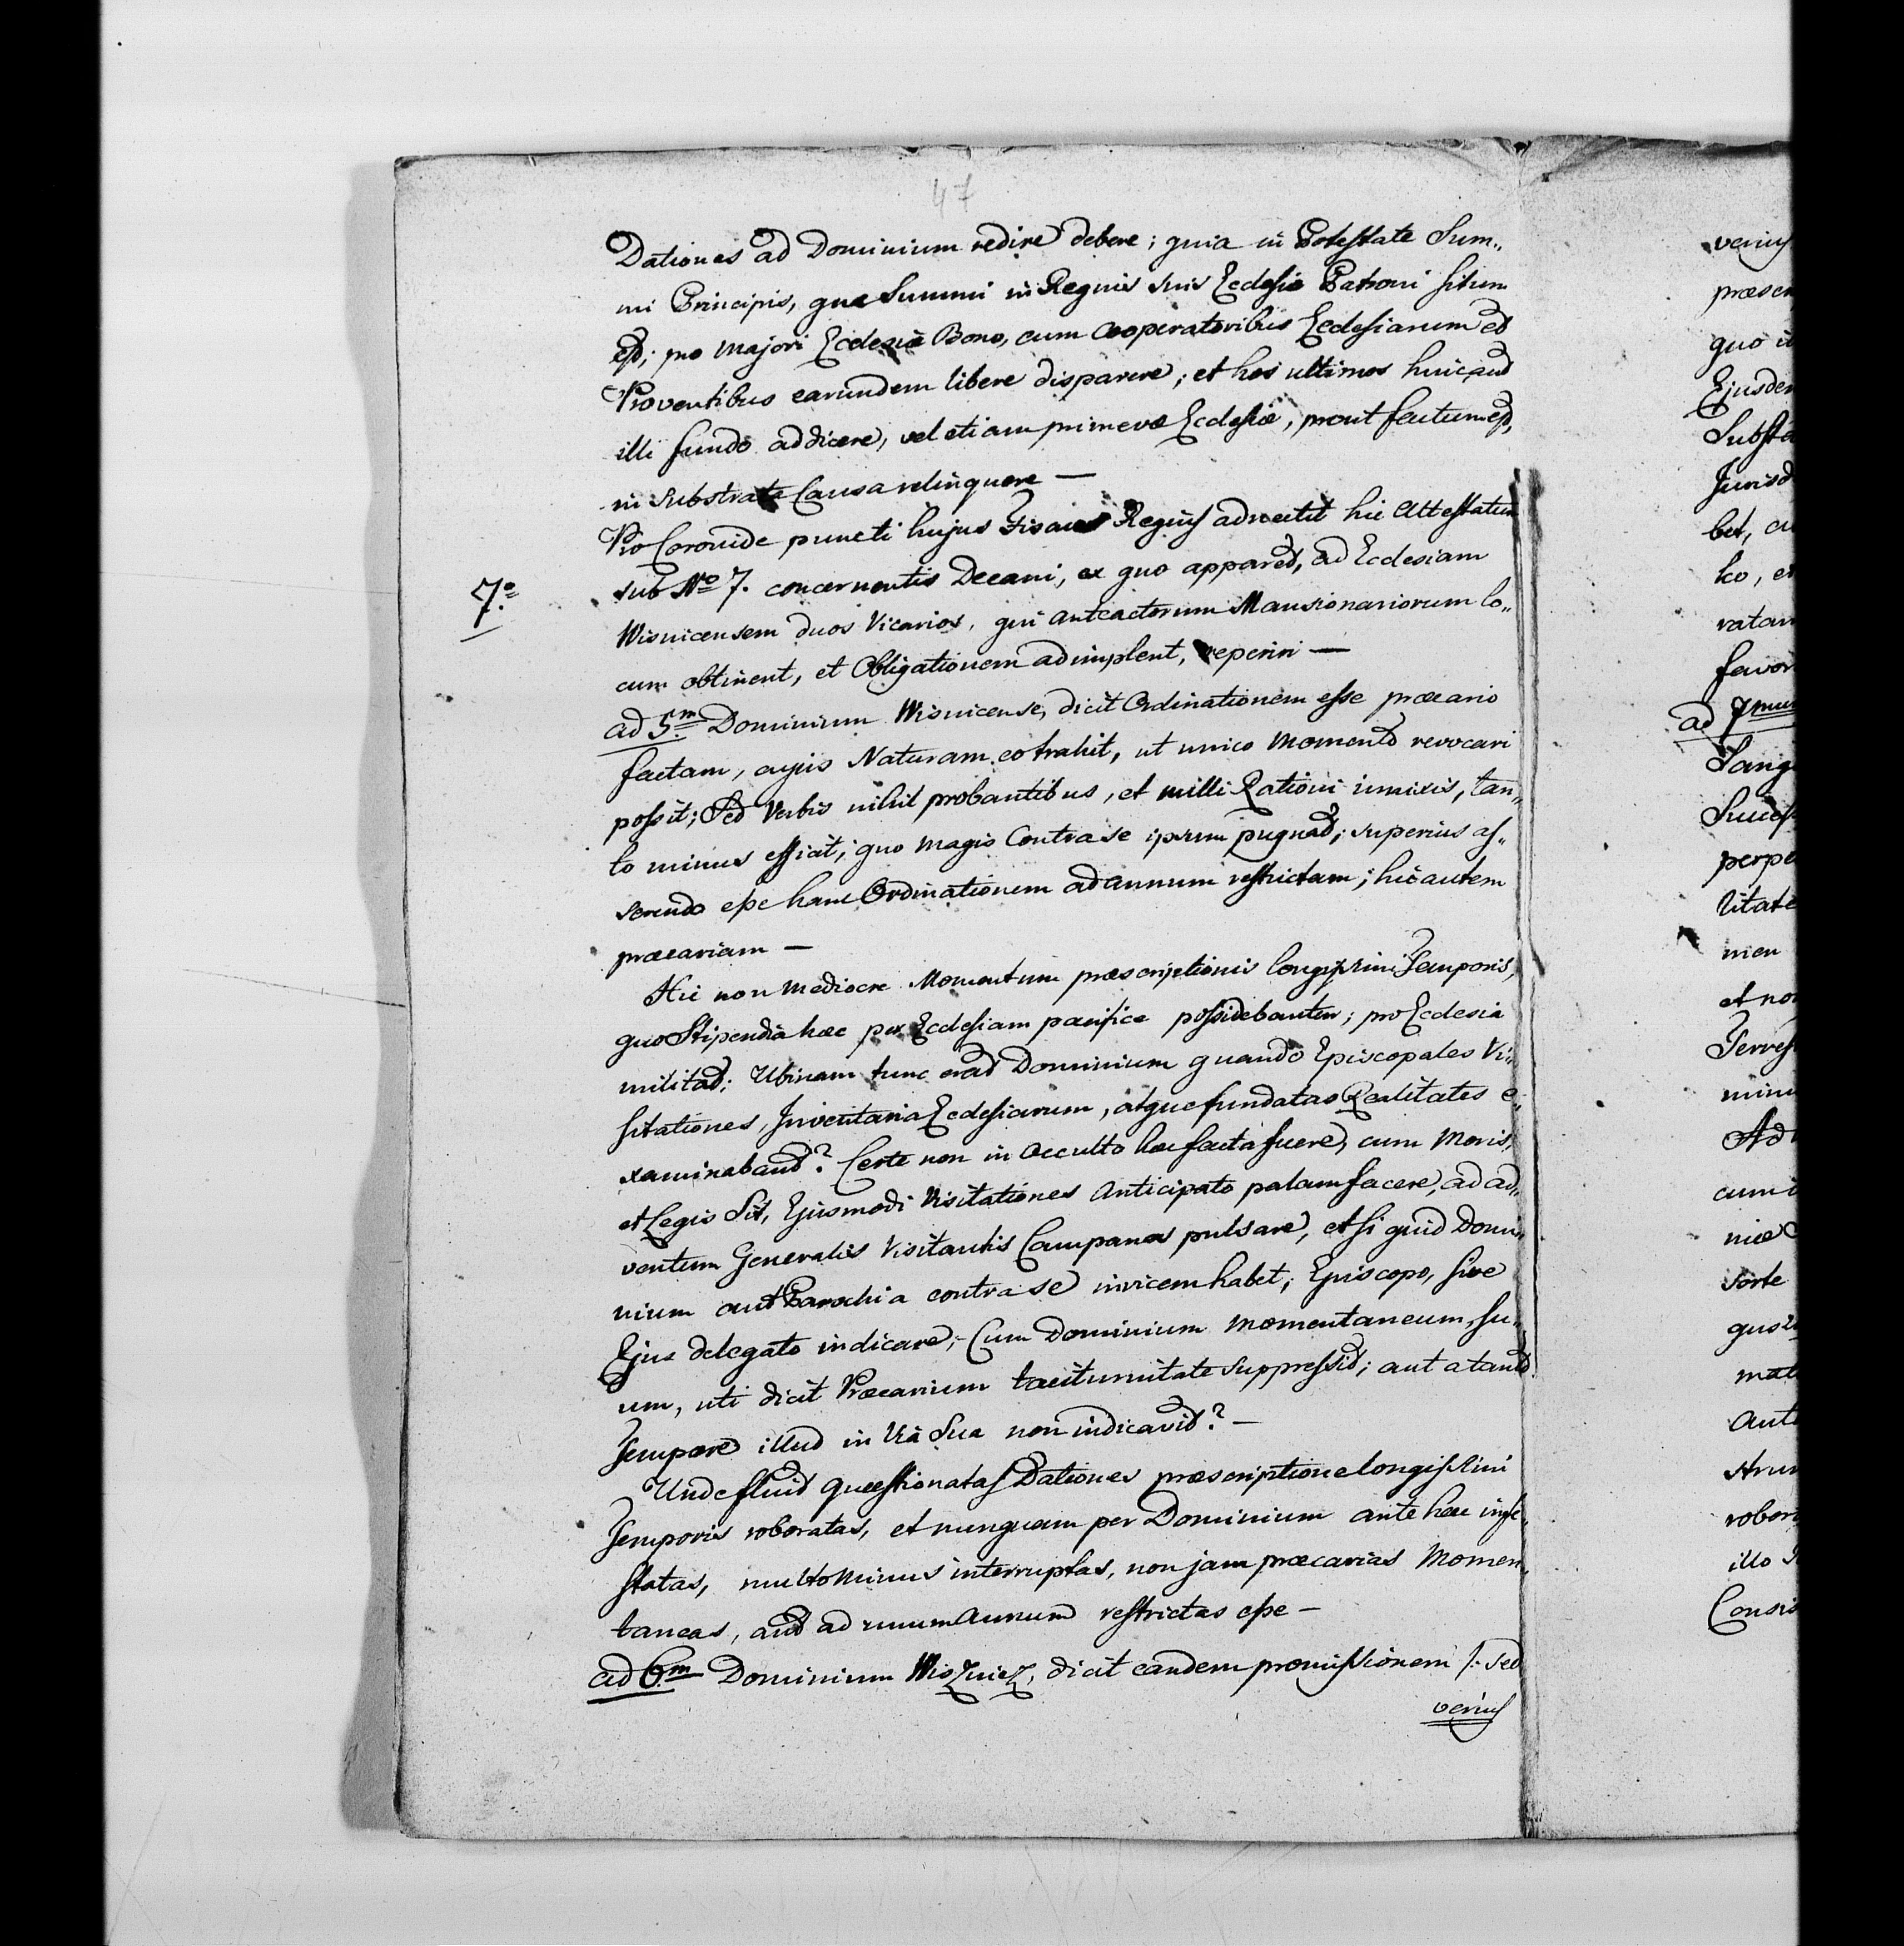 47
Dationes ad Dominium redire debere; quia in Potestate Sum„
mi Principis, qua Summi in Regnis suis Ecclesiæ Patroni situm
est; pro majori Ecclesiæ Bono, cum Cooperatoribus Ecclesiarum et
Proventibus earundem libere disparere; et hos ultimos huic aut
illi fundo addicere, vel etiam primevæ Ecclesiæ, prout factum est,
in substrata Causa relinquere —
Pro Coronide puncti hujus Fiscus Regius adnectit hic Attestatum
7º sub Nº 7. concernentis Decani, ex quo apparet, ad Ecclesiam
Wisnicensem duos Vicarios, qui anteactorum Mansionariorum lo„
cum obtinent, et Obligationem adimplent, reperiri —
ad 5m Dominium Wisnicense, dicit Ordinationem esse præcario
factam, cujus Naturam eo trahit, ut unico Momento revocari
possit; Sed Verbis nihil probantibus, et nulli Rationi innixis, tan„
to minus efficit, quo magis Contra se ipsum pugnat; superius as„
serendo esse hanc Ordinationem ad annum restrictam; hic autem
præcariam —
Hic non mediocre Momentum præscriptionis longissimi Temporis,
quo Stipendia hæc per Ecclesiam pacifice possidebantur; pro Ecclesia
militat; Ubinam tunc erat Dominium quando Episcopales Vi„
sitationes, Inventaria Ecclesiarum, atque fundatas Realitates e„
xaminabant? Certe non in occulto hæc facta fuere, cum Moris,
et Legis Sit, Ejusmodi Visitationes Anticipato palam facere, ad ad„
ventum Generalis Visitantis Campanas pulsare, et si quid Domi„
nium aut Parochia contra se invicem habet, Episcopo, sive
Ejus delegato indicare; Cum Dominium momentaneum, su„
um, uti dicit Præcarium taciturnitate suppressit; aut a tanto
Tempore illud in Via Sua non indicavit? —
Unde fluit quæstionatas Dationes præscriptione longissimi
Temporis roboratas, et nunquam per Dominium ante hæc infe„
statas, multo minus interruptas, non jam præcarias Momen„
taneas, aut ad unum Annum restrictas esse —
ad 6m Dominium Wisznicz, dicit eandem promissionem /: sed
verius
verius
præscr
quo
Ejusdem
Substa
Jurisd
bet,
ko, et
ratam
favor
ad 7mum
Sang
Success
perpe
litate
men
et no
minu
Ad
cum
niæ
sorte
aut
robor
illo
Consis